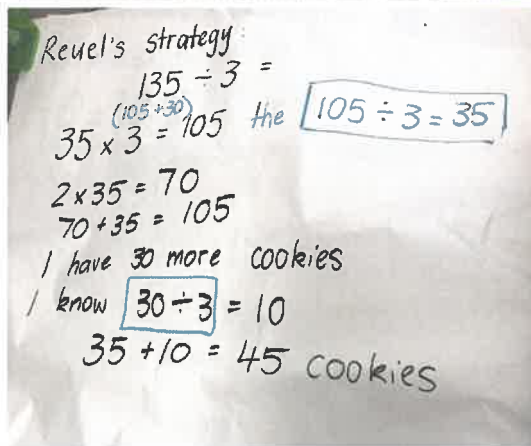 Reuel's strategy:
135 ÷ 3 =
(105+30)
35 x 3 = 105 the 105 ÷ 3 = 35
2x35 = 70
70 + 35 = 105
I have 30 more cookies
I know 30 ÷ 3 = 10
35 +10 = 45 cookies